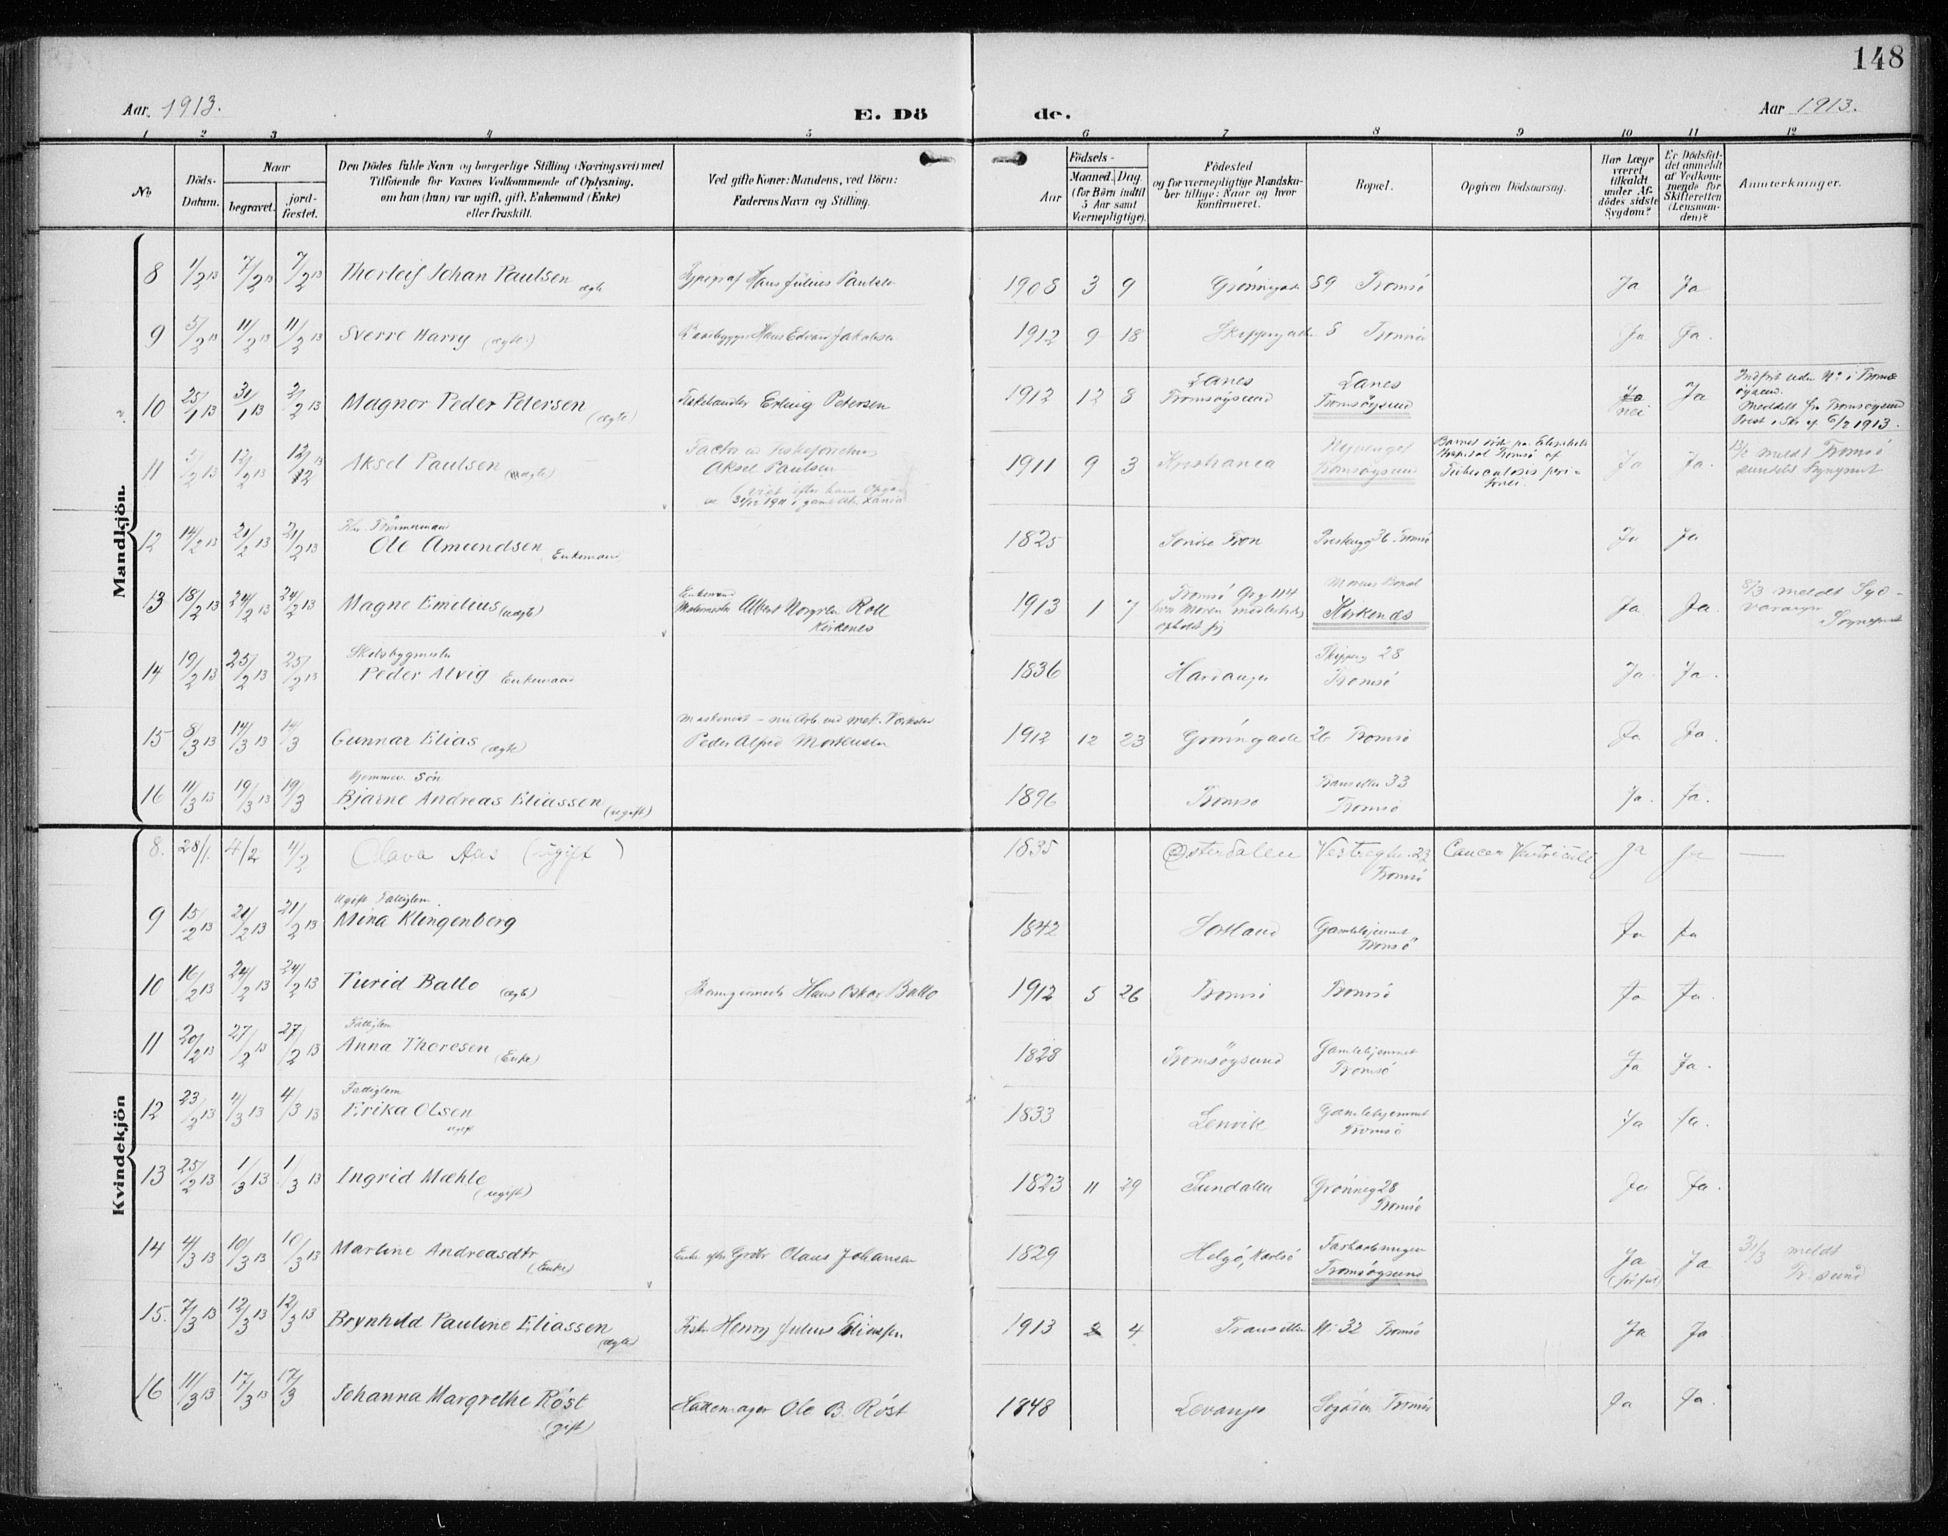 148
Aar 1913.
E. Dö
de.
Aar 1913.
1 2 3 4 5 6 7 8 9 10 11 12
No
Döds-Datum.
Naar
begravet.
jord-fæstet.
Den Dödes fulde Navn og borgerlige Stilling (Næringsvei) med
Tilföiende for Voxnes Vedkommende af Oplysning,
om han (hun) var ugift, gift, Enkemand (Enke)
eller fraskilt.
Ved gifte Koner: Mandens, ved Börn:
Faderens Navn og Stilling.
Födsels-
Aar
Maaned. Dag.
(for Börn indtil
5 Aar samt
Værnepligtige).
Födested
og for værnepligtige Mandska-
ber tillige: Naar og hvor
konfirmeret.
Bopæl.
Opgiven Dödsaarsag.
Har Læge
været
tilkaldt
under Af-
dödes sidste
Sygdom?
Er Dödsfal-
det anmeldt
af Vedkom-
mende for
Skifteretten
(Lensman-
den)?
Anmærkninger.
Mandkjön.
8 1/2 13 7/2 13 7/2 13 Thorleif Johan Paulsen ægte Typograf Hans Julius Paulsen 1908 3 9 Grønnegade 89 Tromsö Ja Ja
9 5/2 13 11/2 13 11/2 13 Sverre Harry (ægte) Baadbygger Hans Edvard Jakobsen 1912 9 18 Skippergade 8 Tromsö Ja Ja.
10 25/1 13 31/1 13 2/2 13 Magnor Peder Petersen (ægte) Fiskehandler Erling Petersen 1912 12 8 Lanes Tromsöysund Lanes Tromsöysund Ja nei Ja
Indført uden No i Tromsöysund.
Meddelt fra Tromsöysund
Prest i Skr. af 6/2 1913.
11 5/2 13 12/2 13 12/2 13 Aksel Paulsen (uægte) Aksel Paulsen 1911 9 3 Kristiania Tromsöysund
Tromsö af
Tuberculosis peri-
Ja Ja. meldt Tromsö
12 14/2 13 21/2 13 21/2 13 Fhv. Tømmermand
Ole Amundsen Enkemand 1825 Söndre Fron 36 Tromsö Ja Ja
13 18/2 13 24/2 13 24/2 13 Magne Emilius (uægte) Enkemand
Malermester Albert Norgren Roll
Kirkenes 1913 1 7 Tromsö Grg 114
hvor Moren midlertidig
opholdt sig Morens Bopæl
Kirkenæs Ja Ja. 8/3 meldt Syd-
varanger
Sogneprest
14 19/2 13 25/2 13 25/2 13 Skibsbygmester
Peder Alvig Enkemand 1836 Hardanger Skipperg 28
Tromsö Ja Ja.
15 8/3 13 14/3 13 14/3 Gunnar Elias (ægte) Maskinist - nu Arb. ved mek. Værksted
Peder Alfred Mortensen 1912 12 23 Grønnegade 26 Tromsö Ja Ja.
16 11/3 13 19/3 13 19/3 Hjemmev. Sön
Bjarne Andreas Eliassen (ugift) 1896 Tromsö 33
Tromsö Ja. Ja.
Kvindekjön
8. 28/1. 4/2 4/2 Olava Aas (ugift) 1835 Østerdalen Vestregt. 23
Tromsö Cancer Ventriculi Ja Ja —
9 15/2 13 21/2 13 21/2 13 Ugift Fattiglem.
Mina Klingenberg 1842 Sortland Gamlehjemmet
Tromsö Ja Ja
10 16/2 13 24/2 13 24/2 13 Turid Ballo (ægte) Hans Oskar Ballo 1912 5 26 Tromsö Tromsö Ja Ja.
11 20/2 13 27/2 13 27/2 13 Fattiglem
Anna Thoresen (Enke) 1828 Tromsöysund Gamlehjemmet
Tromsö Ja Ja.
12 23/2 13 4/3 13 4/3 13 Fattiglem
Erika Olsen
ugift 1833 Lenvik Gamlehjemmet
Tromsö Ja Ja.
13 25/2 13 1/3 13 1/3 13 Ingrid Mæhle (ugift) 1823 11 29 Sundalen Grønneg 28
Tromsö Ja Ja.
14 4/3 13 10/3 13 10/3 13 Martine Andreasdtr (Enke) Enke efter Grdbr Olaus Johansen 1829 Helgö, Karlsö
Tromsöysund Ja Ja 31/3 meldt
Tr. sund
15. 7/3 13 12/3 13 12/3 13 Brynhild Pauline Eliassen (ægte) Fisker Henry Julius Eliassen 1913 2 4 32 Tromsö Ja Ja
16 11/3 13 17/3 13 17/3 Johanna Margrethe Röst
(gift) Hattemager Ole B. Röst 1848 Levanger Tromsö Ja Ja.